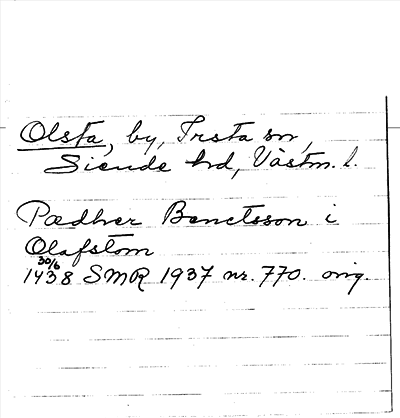 Olsta, by, Irsta sn,
Siende hd, Västm. l.
Pædher Benctsson i
Olafstom
30/6
1438 SMR 1937 nr. 770. orig.